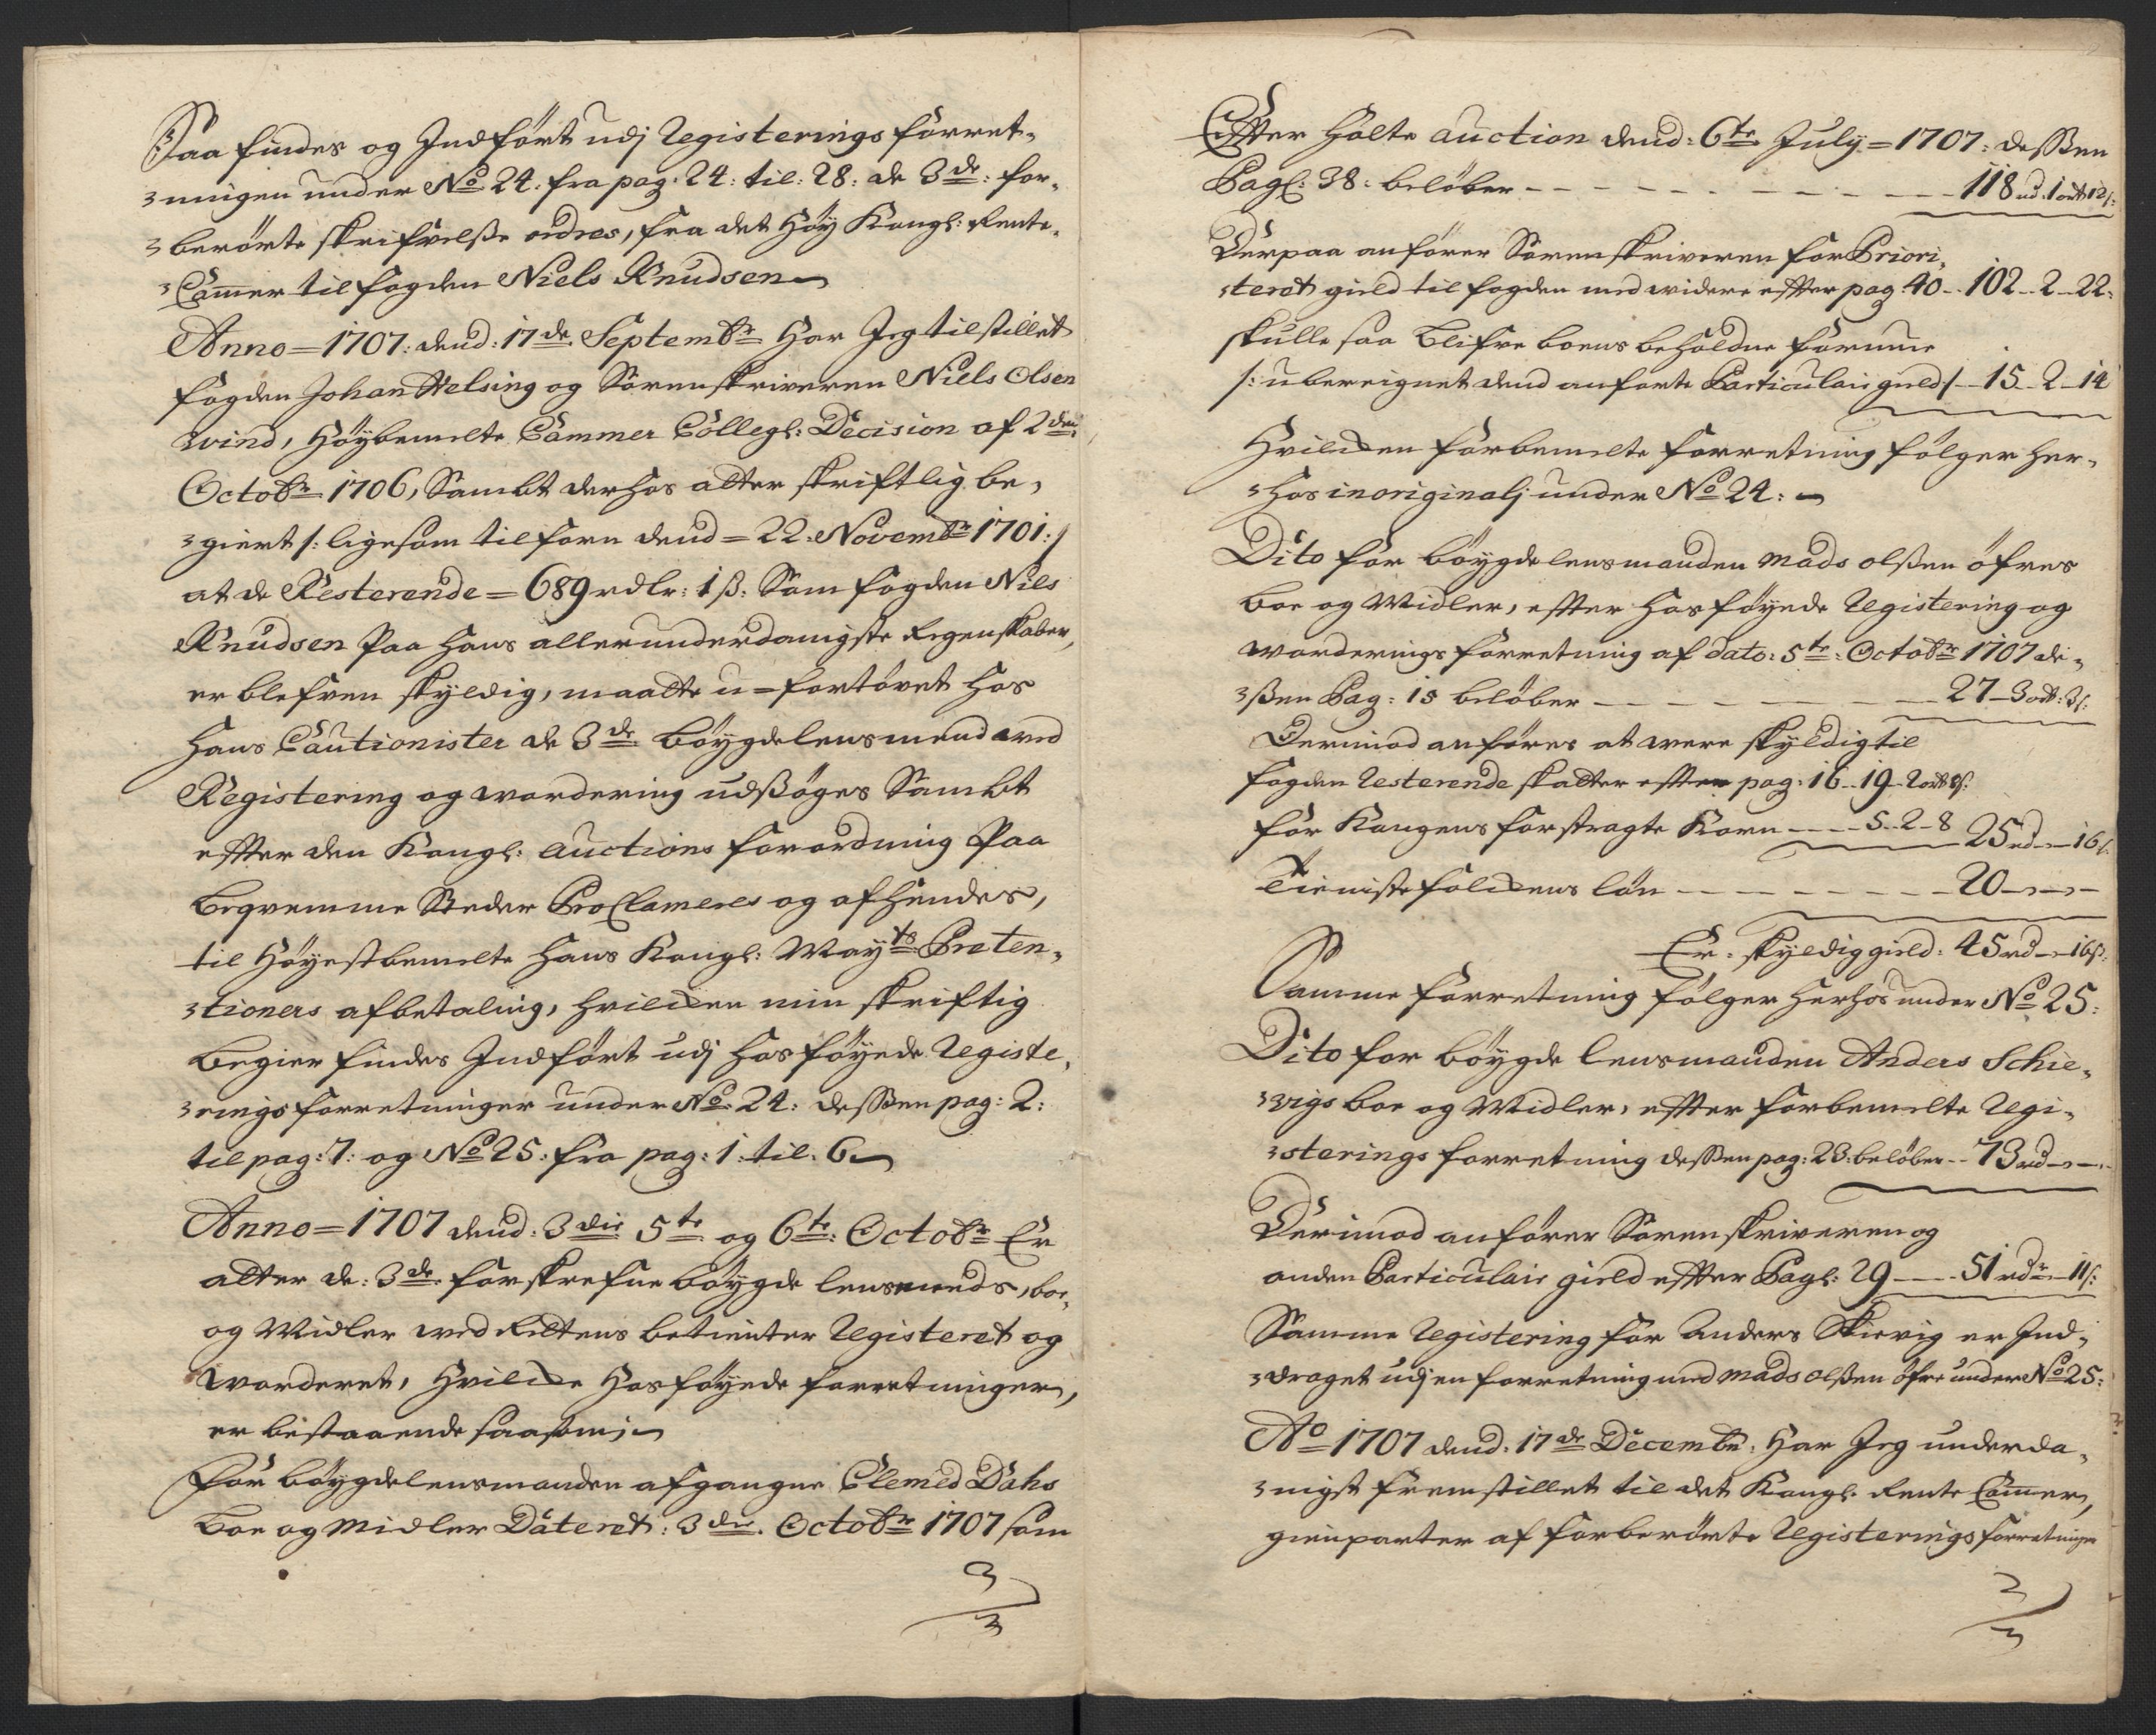 Saa findes og Indført udj Registerings forret-
ningen under No 24. fra pag. 24: til: 28: de 3de: for-
berørte skrifvelsße ordres, fra det Høy Kongl: Rente-
Cammer til fogden Niels Knudsen
Anno = 1707: dend: 17de Septembr Har Jeg tilstillet
fogden Johan Helsing og Sorenskriveren Niels Olsen
wind, Høybemelte Cammer Collegl: Decision af 2den
Octobr 1706, Sambt derhos atter skriftlig be-
giert /: ligesom tilforn dend = 22. Novembr 1701:/
at de Resterende = 689 rdlr: 1 ß: Som fogden Niels
Knudsen Paa hans allerunderdanigste Regenskaber,
er blefven skyldig, maatte u=fortøvet hos
hans Cautionister de 3de bøygdelensmend ved
Registering og vordering udsßøges Sambt
effter den Kongl: auctions forordning Paa
beqvemme Steder Proclameres og afhendes,
til Høyestbemelte Hans Kongl: Mayts Preten-
tioners afbetaling, hvilcken min skriftig
begier findes Indført udj hosføyede Registe-
rings forretninger under No 24: desßen pag: 2:
til pag: 7: og No 25: fra pag: 1: til: 6
Anno = 1707 dend: 3die 5te og 6te: Octobr Er
atter de: 3de forskrefne bøygde lensmends, boe-
og Midler ved Rettens betienter Registeret og
vorderet, Hvilcke Hosføyede forretninger,
er bestaaende saasom;
For bøygdelensmanden afgangne Clemed Dahs
boe og Midler Dateret: 3die. Octobr 1707 som
Effter Holte auction dend: 6te July = 1707: desßen
Pagl: 38: beløber - - - 118 rd. 1 ort 12 s:
Derpaa anfører Sorenskriveren for Priori-
teret gield til fogden med videre effter pag. 40 - 102 - 2 - 22:
skulle saa blifve boens beholdne formue
/: ubereignet dend anførte Particulair gield / - 15 - 2 - 14
Hvilcken forbemelte forretning følger her-
hos in originalj under No 24:
Dito for bøygdelensmanden Mads olsßen øfres
boe og Midler, effter hosføyede Registering og
vorderings forretning af dato: 5te: Octobr 1707 de-
sßen Pag: 15 beløber - - - 27 - 3 ort: 3 s:
Derimod anføres at were skyldig til
fogden Resterende skatter effter pag: 16 - 19 - 2 ort 8 s:
for Kongens forstragte Korn - - 5 - 2 - 8 25 rd - 16 s
Tieniste folckens løn - - - 20 - -
Er. skyldig gield: 45 rd - 16 s:
Samme forretning følger herhos under No 25:
Dito for bøygde lensmanden Anders Schie-
vigs boe og Midler, effter forbemelte Regi-
sterings forretning desßen pag: 23: beløber - 73 rd - -
Derimod anfører Sorenskriveren og
anden Particulair gield effter Pagl: 29 - - 51 rdr - 11 s:
Samme Registering for Anders Skievig er Ind-
draget udj en forretning med Mads olsßen øfre under No 25:
Ao 1707 dend: 17de Decembr: Har Jeg underda-
nigst fremstillet til det Kongl. Rente Cammer,
gienparter af forberørte Registerings forretninger